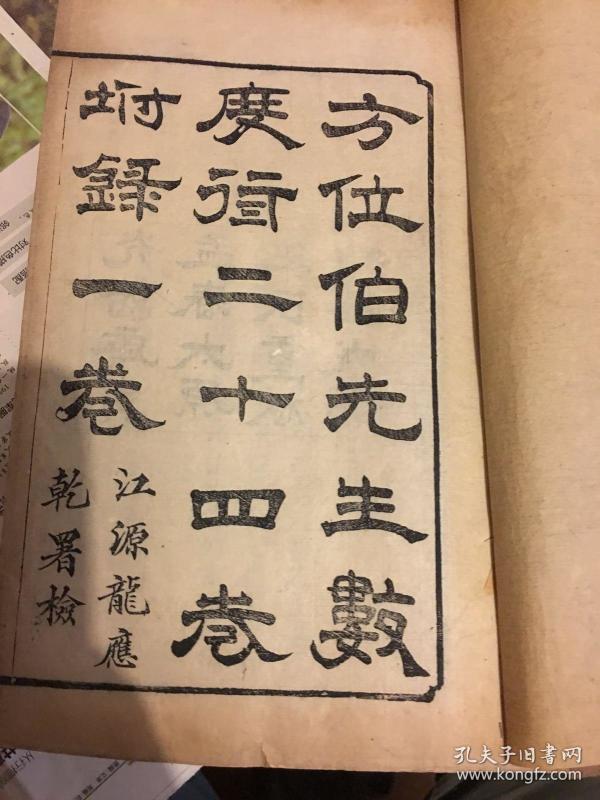 方位伯先生數
度衍二十四卷
坿錄一卷
江源龍應
乾署檢
孔夫子旧书网
www.kongfz.com